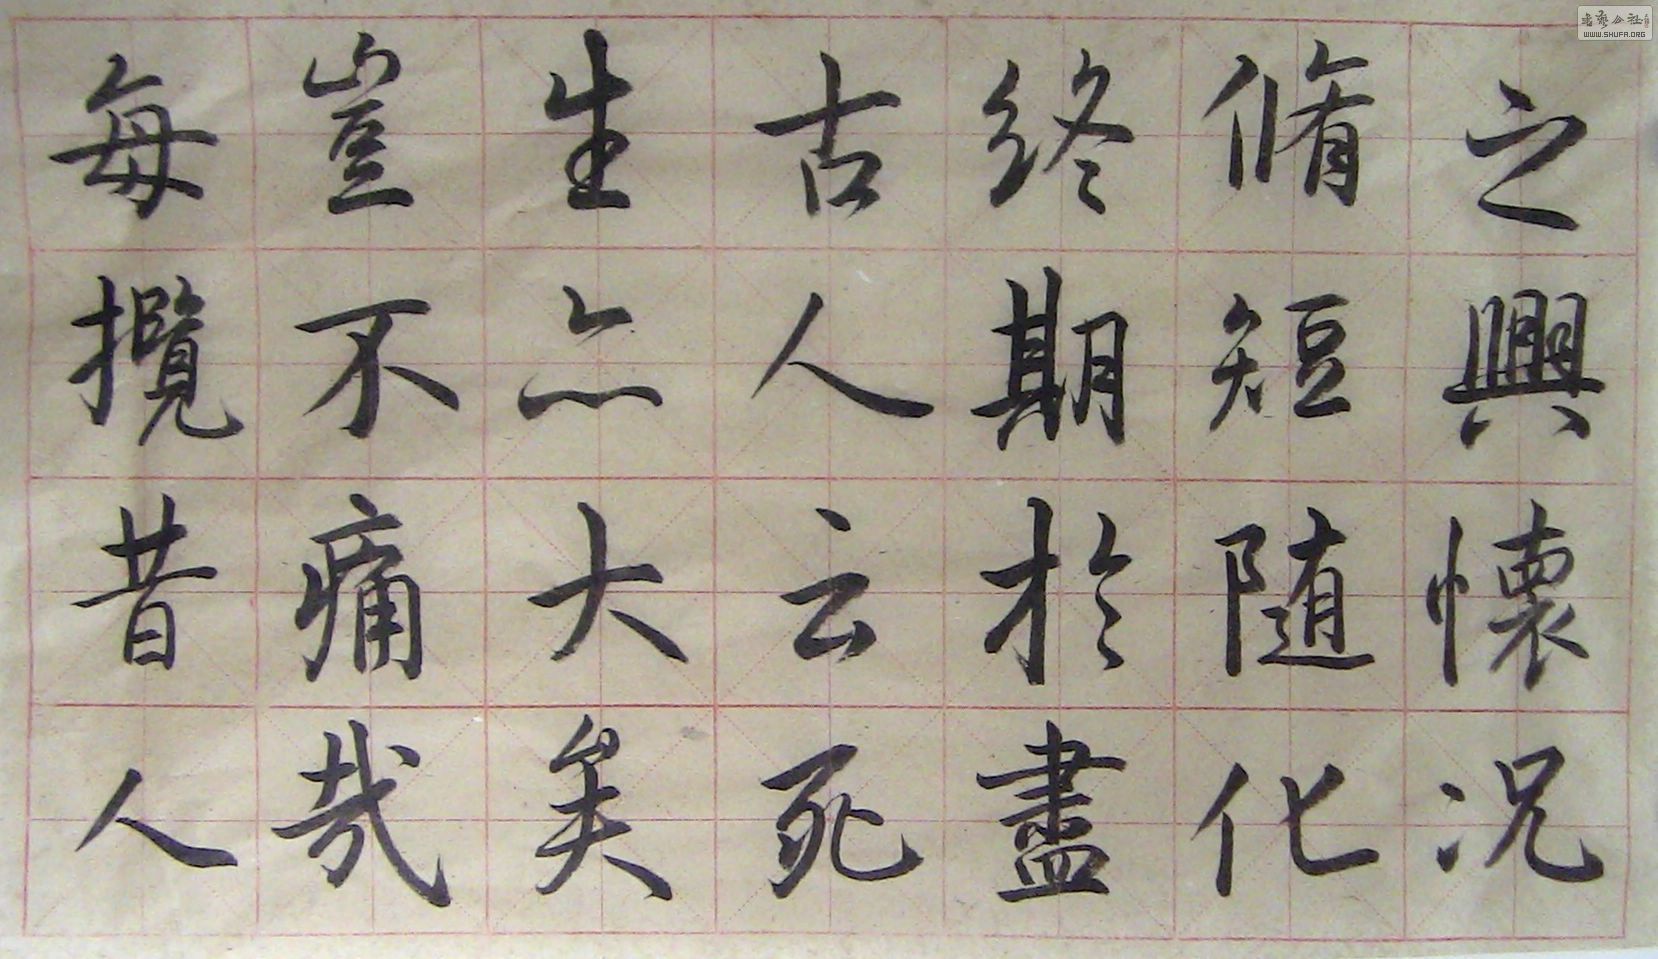 之興懷況
脩短随化
終期於盡
古人云死
生亦大矣
豈不痛哉
每攬昔人
书艺公社
WWW.SHUFA.ORG